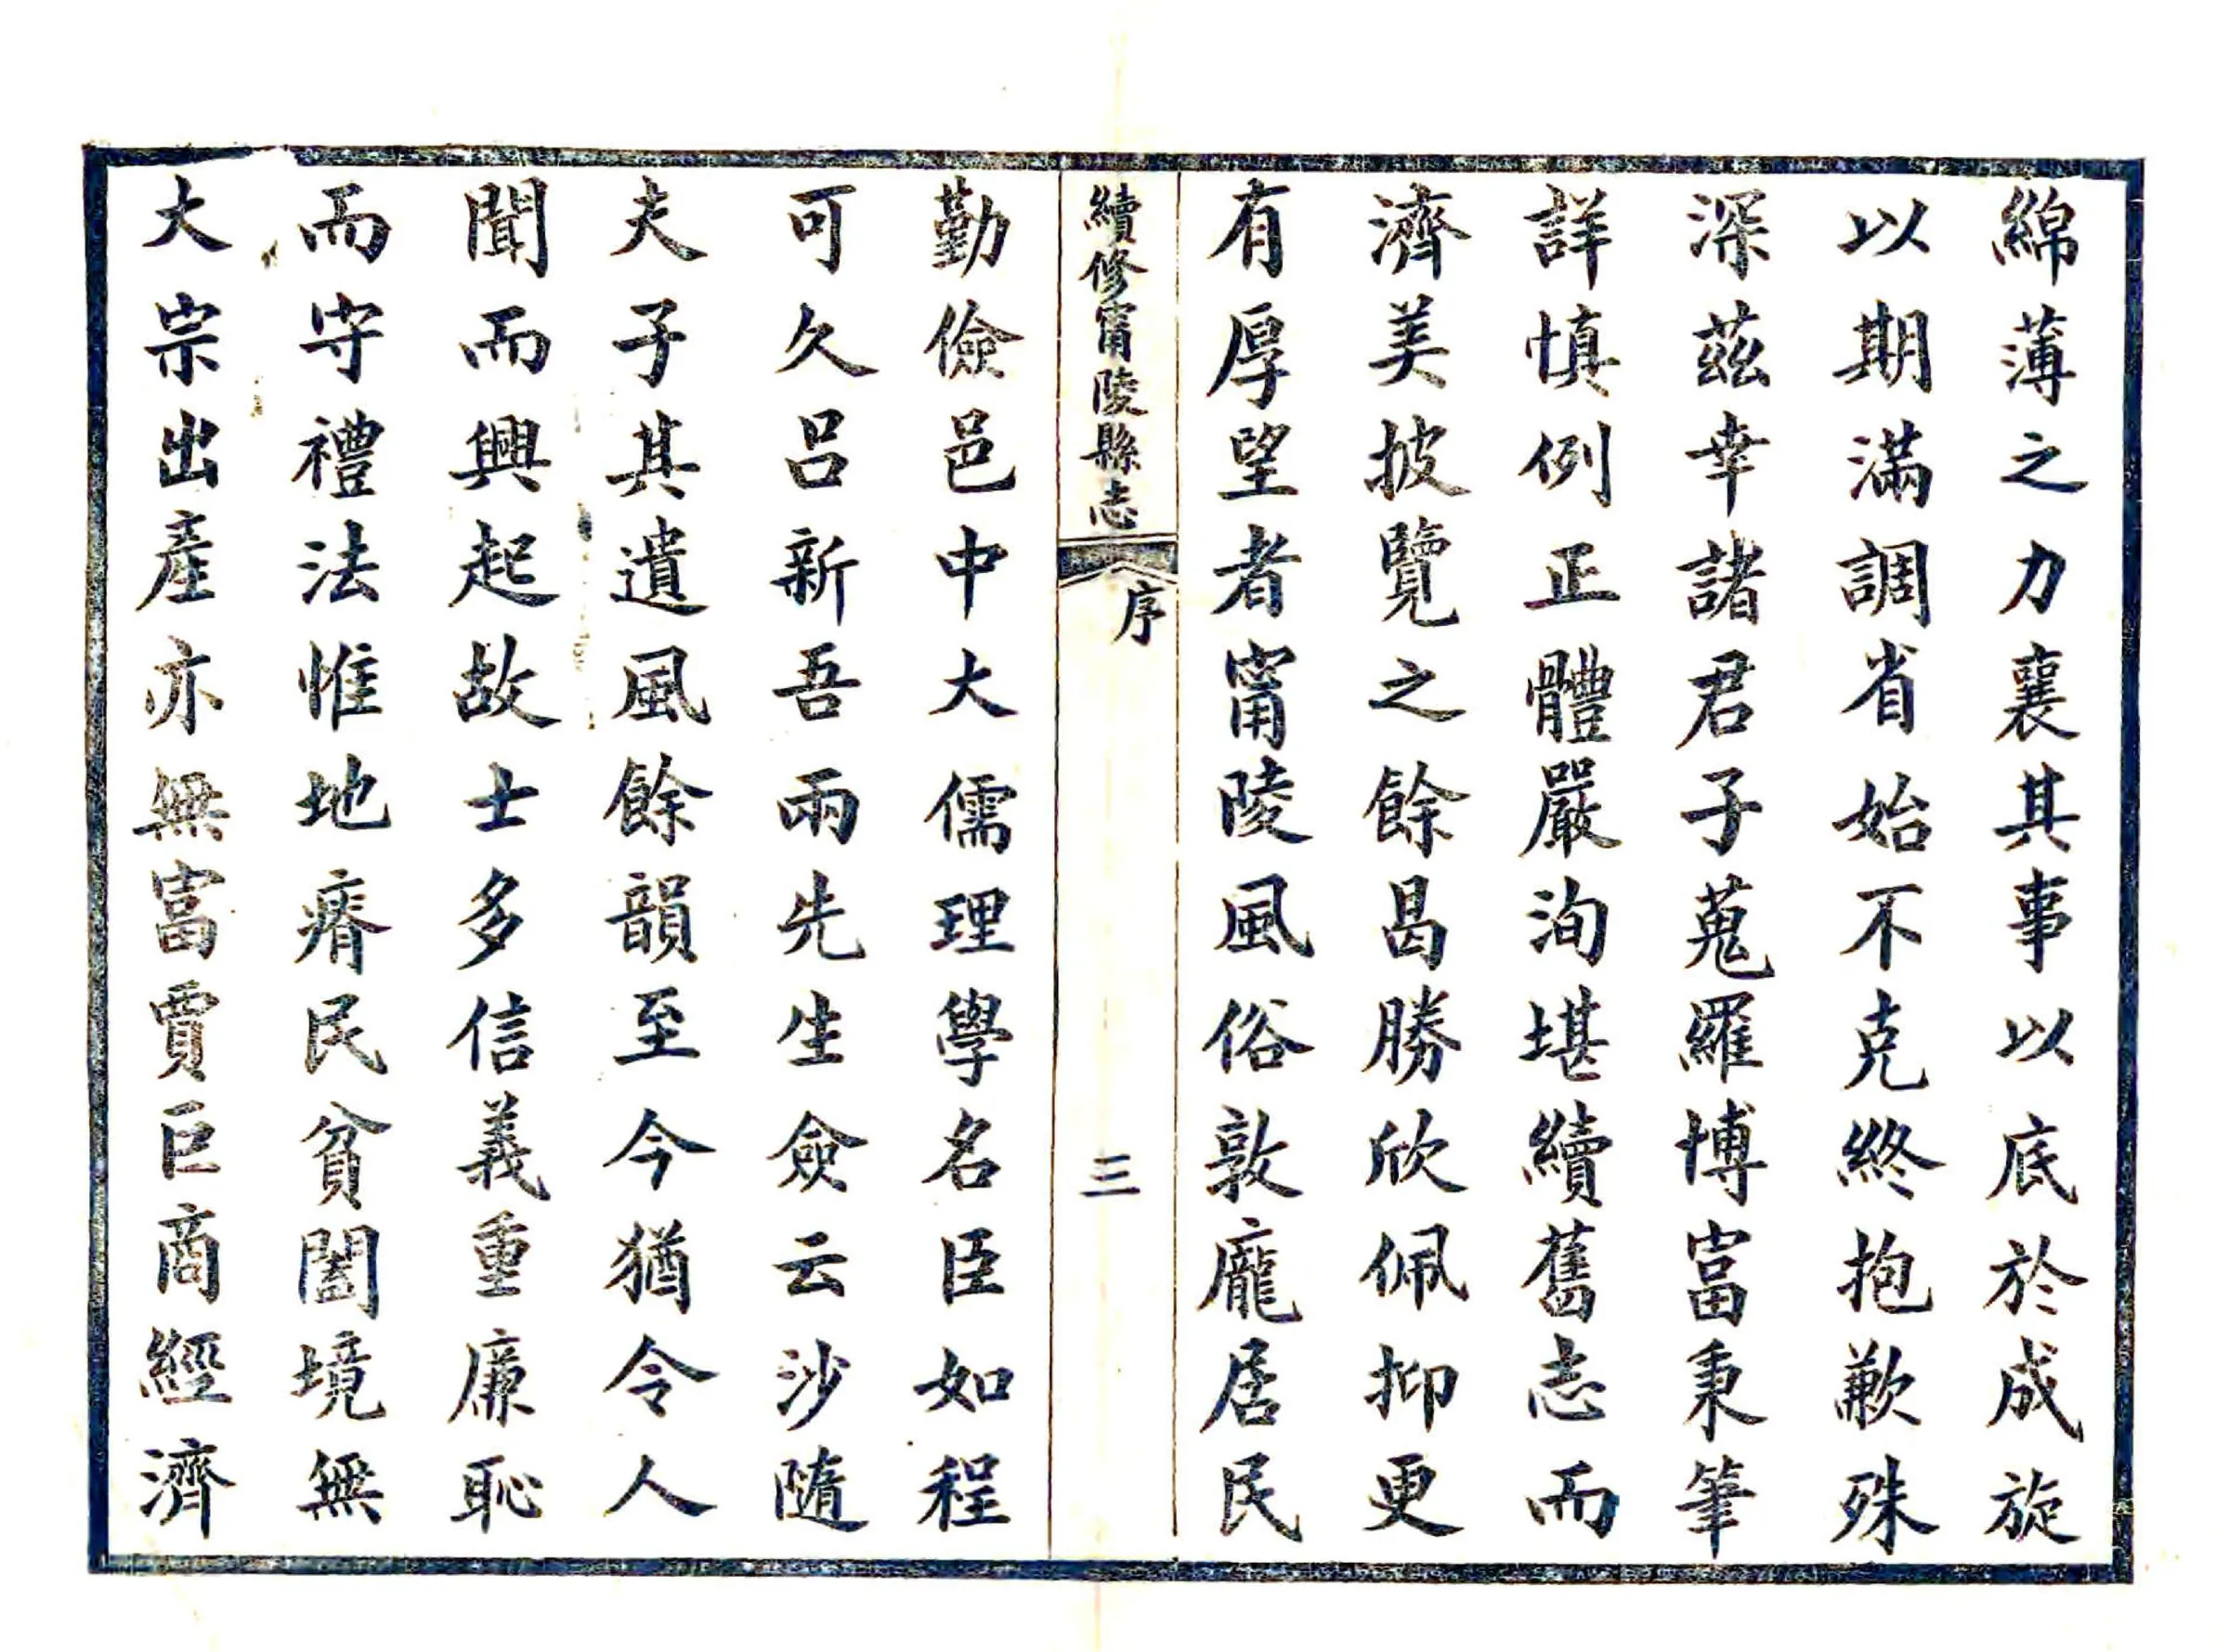 綿薄之力襄其事以底於成旋
以期滿調省始不克終抱歉殊
深茲幸諸君子蒐羅博富秉筆
詳慎例正體嚴洵堪續舊志而
濟美披覽之餘曷勝欣佩抑更
有厚望者甯陵風俗敦龐居民
續修甯陵縣志
序
三
勤儉邑中大儒理學名臣如程
可久呂新吾兩先生僉云沙隨
夫子其遺風餘韻至今猶令人
聞而興起故士多信義重廉恥
而守禮法惟地瘠民貧闔境無
大宗出產亦無富賈巨商經濟